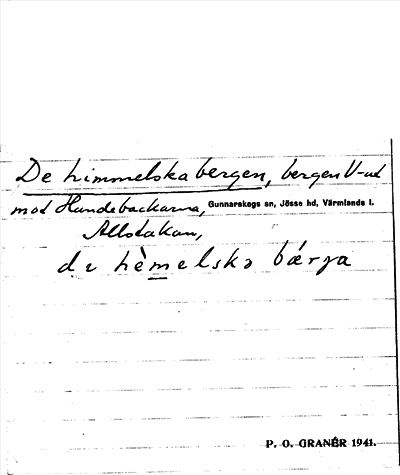 De himmelska bergen, bergen V-ut
mot Hundebackarna, Gunnarskogs sn, Jösse hd, Värmlands l.
Allstakan,
di hèmelskə bǽrja
P. O. GRANÉR 1941.